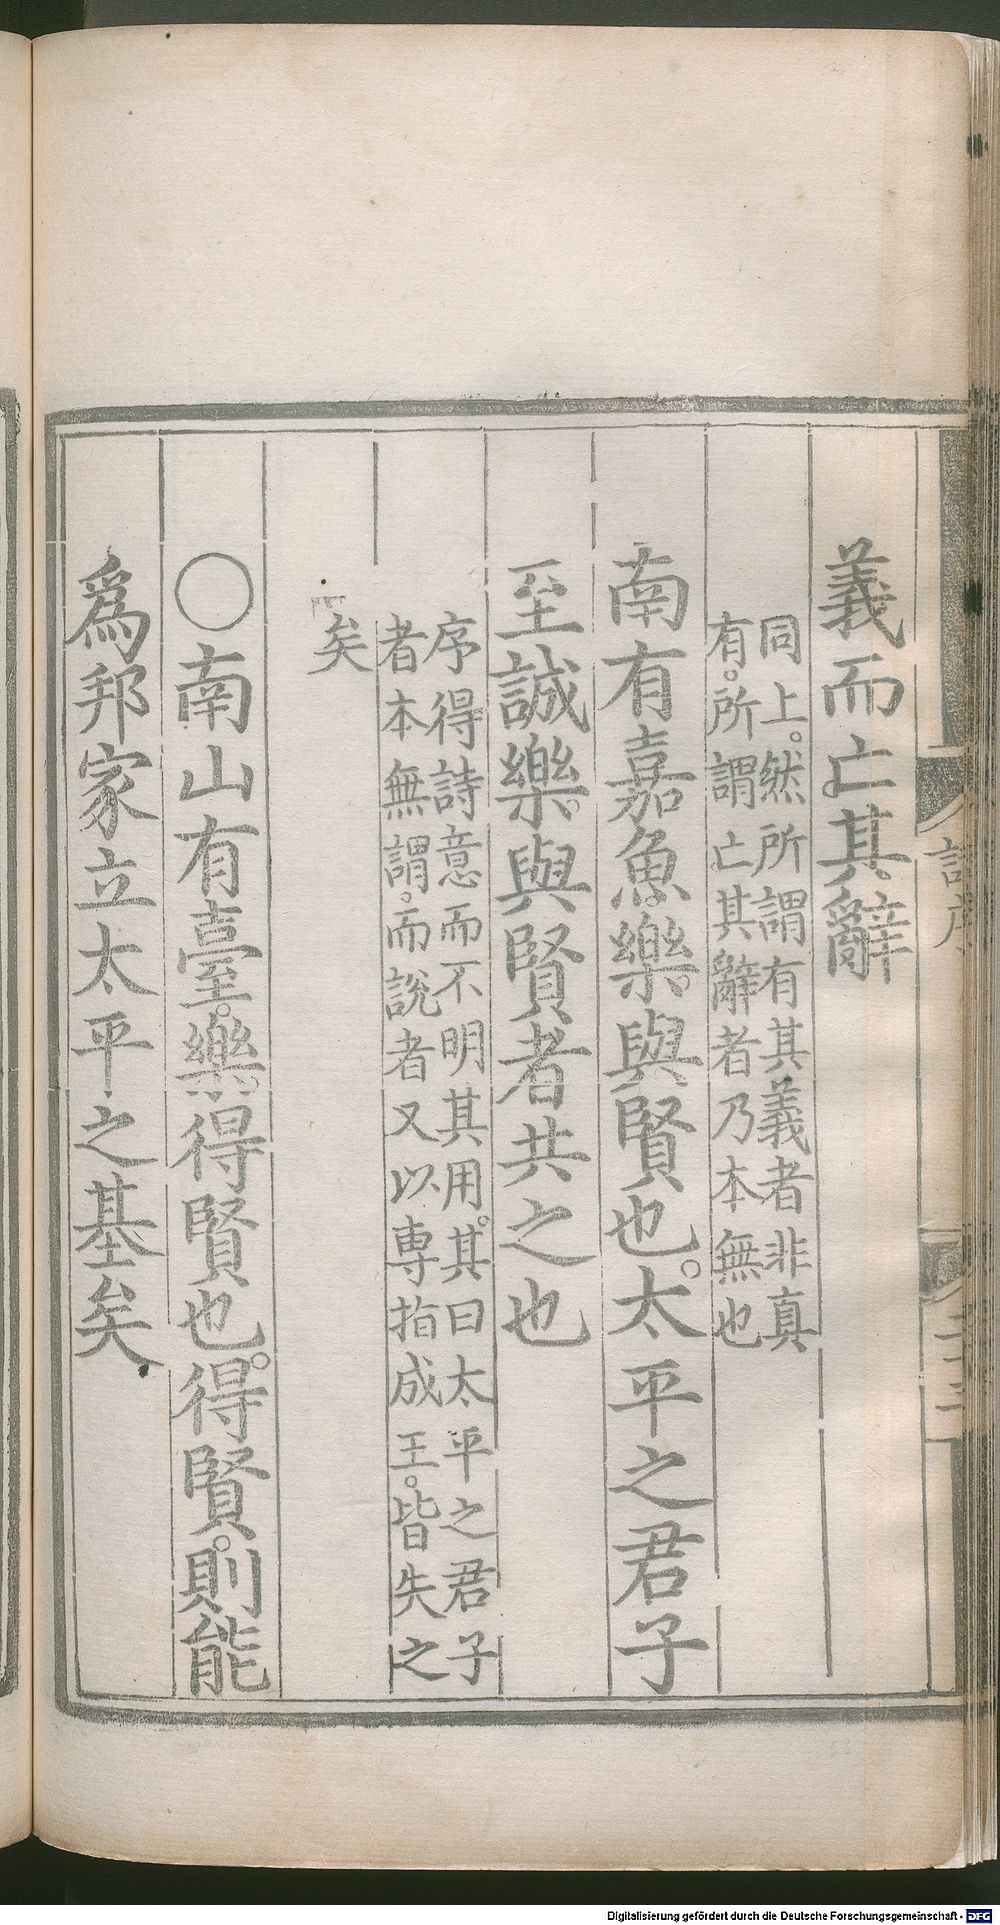 義而亡其辭
同上。然所謂有其義者非真
有。所謂亡其辭者乃本無也
南有嘉魚樂。與賢也。太平之君子
至誠樂。與賢者共之也
序得詩意而不明其用。其曰太平之君子
者本無謂。而說者又以專指成王。皆失之
矣
○南山有臺。樂。得賢也。得賢。則能
爲邦家立太平之基矣
Digitalisierung gefördert durch die Deutsche Forschungsgemeinschaft - DFG